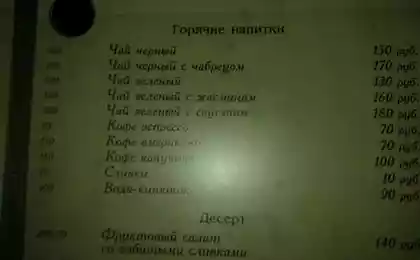 Горячие напитки
Чай черный 150 руб.
Чай черный с чабрецом 170 руб.
Чай зеленый 130 руб.
Чай зеленый с жасмином 160 руб.
Чай зеленый с 180 руб.
Кофе эспрессо 70 руб.
Кофе 70 руб.
Кофе 100 руб.
Сливки 10 руб.
руб.
Десерт
Фруктовый салат 140 руб.
со взбитыми сливками